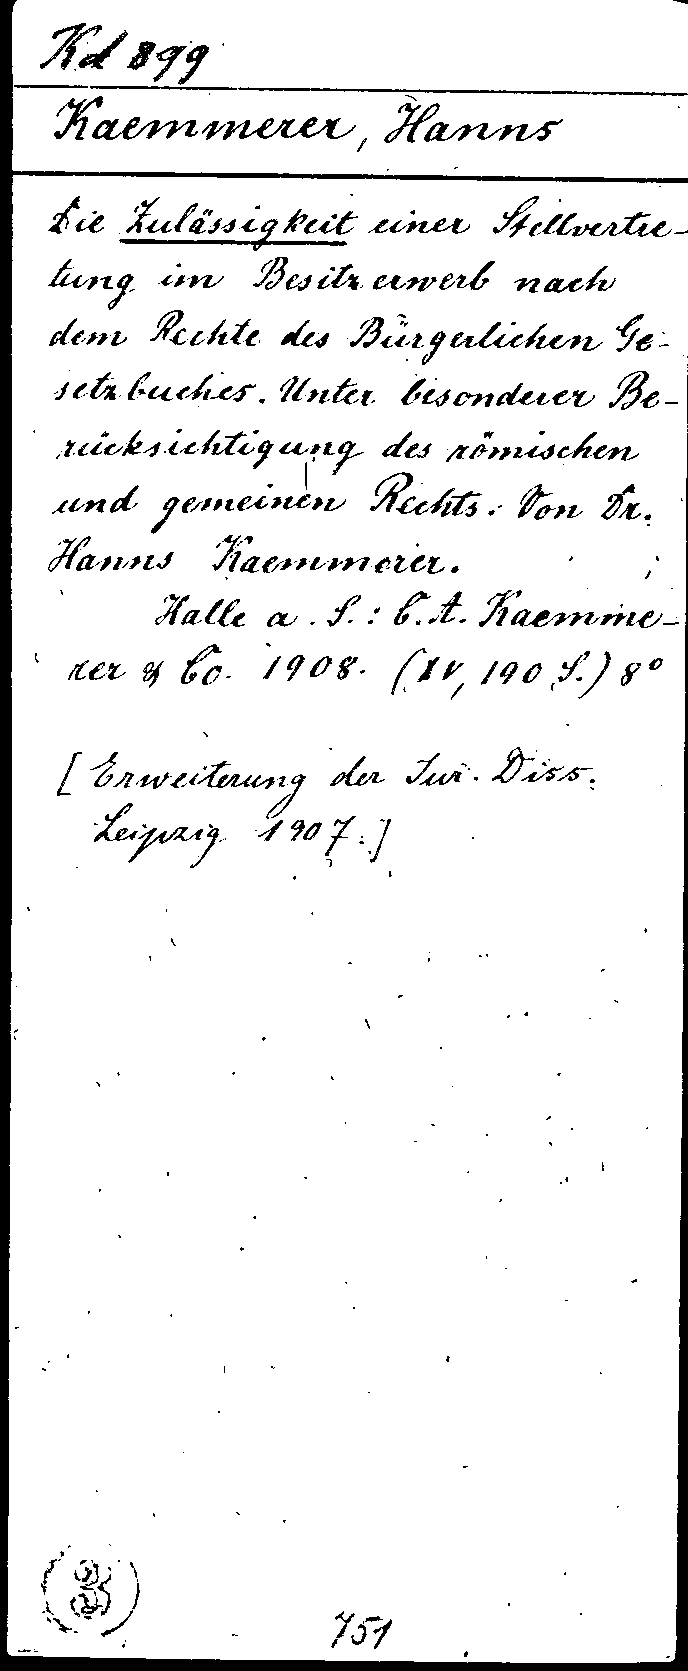 Kd 899
Kaemmerer, Hanns
Die Zulässigkeit einer Stellvertre-
tung im Besitzerwerb nach
dem Rechte des Bürgerlichen Ge-
setzbuches. Unter besonderer Be-
rücksichtigung des römischen
und gemeinen Rechts. Von Dr.
Hanns Kaemmerer.
Halle a. S.: C. A. Kaemme-
rer & Co. 1908. (XV, 190 S.) 8°
[Erweiterung der Jur. Diss.
Leipzig 1907.]
751